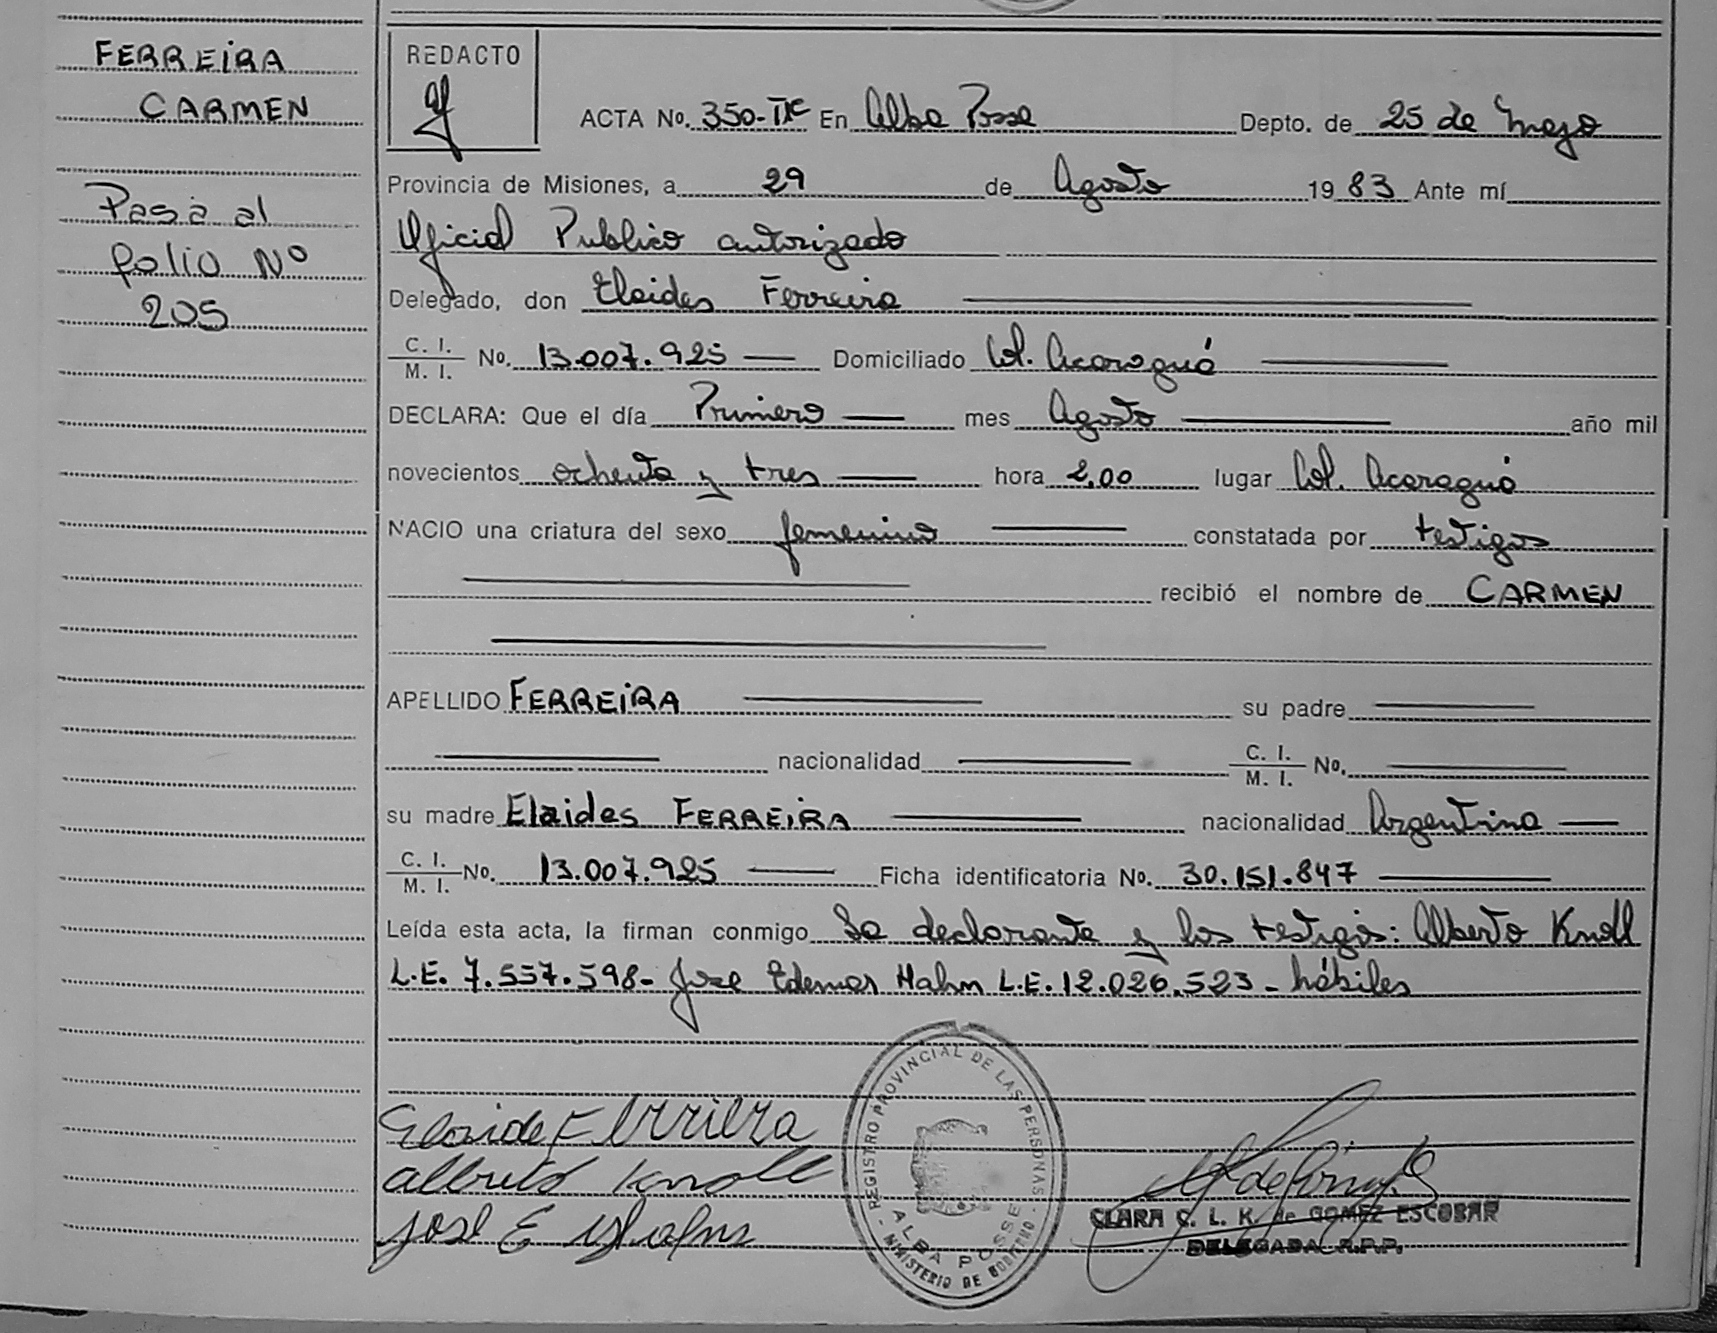 FERREIRA
CARMEN
Pasa al
folio Nº
205
REDACTO
ACTA No. 350-TºC En Alba Posse Depto. de 25 de Mayo
Provincia de Misiones, a 29 de Agosto 1983 Ante mí
Oficial Publico autorizado
Delegado, don Elaides Ferreira
C. I. / M. I. No. 13.007.925 Domiciliado Col. Acaraguá
DECLARA: Que el día Primero mes Agosto año mil
novecientos ochenta y tres hora 2,00 lugar Col. Acaraguá
NACIO una criatura del sexo femenino constatada por testigos
recibió el nombre de CARMEN
APELLIDO FERREIRA su padre
nacionalidad C. I. / M. I. No.
su madre Elaides FERREIRA nacionalidad Argentina
C. I. / M. I. No. 13.007.925 Ficha identificatoria No. 30.151.847
Leída esta acta, la firman conmigo La declarante y los testigos: Alberto Knoll
L.E. 7.557.598- Jose Edemar Hahm L.E. 12.026.523 - hábiles
REGISTRO PROVINCIAL DE LAS PERSONAS
ALBA POSSE
MINISTERIO DE GOBIERNO
Elaide Ferreira
Alberto Knoll
José E
CLARA C. L. K. de GOMEZ ESCOBAR
DELEGADA R.P.P.